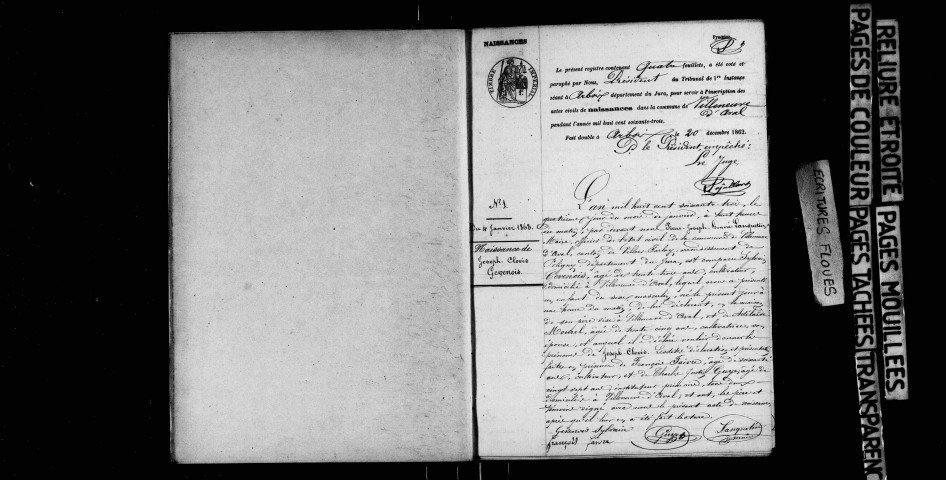 NAISSANCES
TIMBRE IMPERIAL
Le présent registre contenant Quatre feuillets, a été coté et
paraphé par Nous, Président du Tribunal de 1re Instance
séant à Arbois département du Jura, pour servir à l'inscription des
actes civils de naissances dans la commune de Villeneuve
d'Aval
pendant l'année mil huit cent soixante-trois.
Fait double à Arbois le 20 décembre 1862.
le Président empêché :
Juge
N° 1
Du 4 Janvier 1863.
Naissance de
Joseph Clovis
Gevenois.
L'an mil huit cent soixante trois, le
quatrième jour du mois de janvier, à huit heures
du matin, par devant nous Joseph
Maire, officier de l'état civil de la commune de Villeneuve
d'Aval, canton de Villers Farlay, arrondissement de
Poligny département du Jura, est comparu Sylvain
Gevenois, âgé de trente trois ans, cultivateur,
domicilié à Villeneuve d'Aval, lequel nous a présenté
un enfant du sexe masculin, né le présent jour à
une heure du matin, de lui déclarant, en la maison
de son père sise à Villeneuve d'Aval, et de
âgée de trente cinq ans, cultivatrice, son
épouse, et auquel il déclare vouloir donner les
prénoms de Joseph Clovis. Lesdites déclaration et présentation
faites en présence de François Faivre, âgé de soixante
ans, cultivateur, et de Claude Guyot, âgé de
vingt sept ans, instituteur primaire, tous deux
domiciliés à Villeneuve d'Aval, et ont, le père et
témoins signé avec nous le présent acte de naissance,
après qu'il leur en a été fait lecture.
Gevenois Sylvain
françois faivre
RELIURE ETROITE
PAGES DE COULEUR
PAGES MOUILLEES
PAGES TACHEES
TRANSPARENC
ECRITURES FLOUES